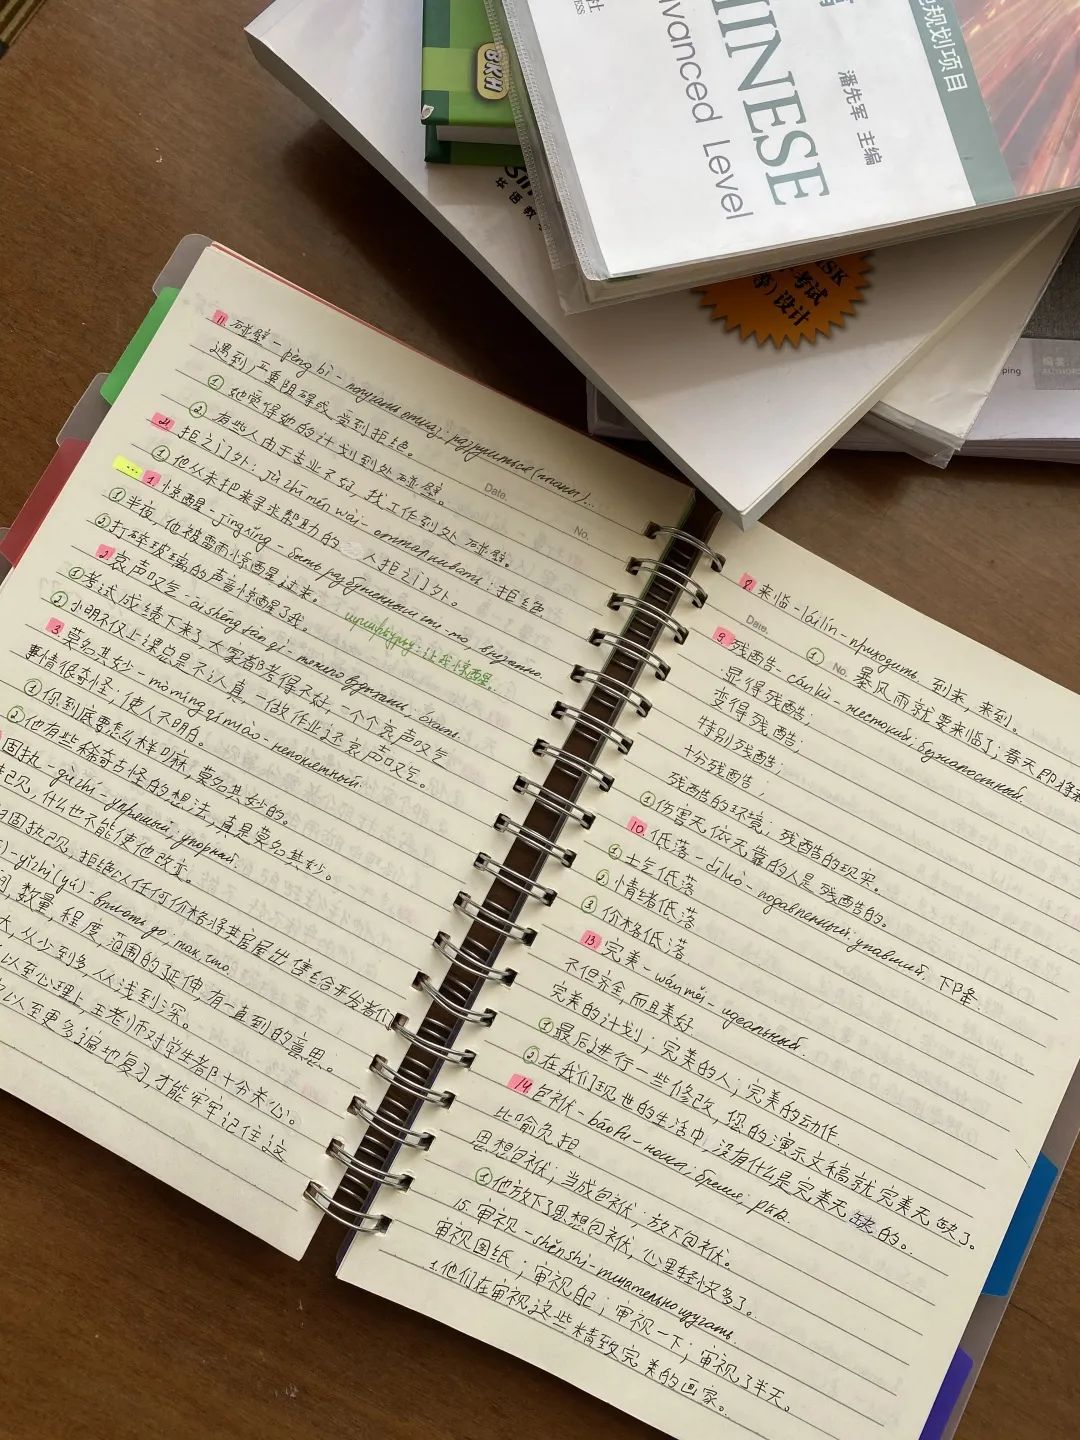 社
ESS
INESE
dvanced Level
潘先军 主编
规划项目
BKH
Sin
华语教
SK
考试
设计
编者:
AUTHORS
ping
Date.
No.
11. 碰壁 - pèng bì - получать отказ; разрушиться (планы)...
遇到严重阻碍或受到拒绝。
① 她觉得她的计划到处碰壁。
② 有些人由于专业不好，找工作到处碰壁。
21 拒之门外: Jù zhī mén wài - отталкивать; 拒绝
① 他从未把来寻求帮助的 人拒之门外。
... 1 惊醒 - jīngxǐng - быть разбуженным чем-то, внезапно.
① 半夜，他被雷雨惊醒过来。
② 打碎玻璃的声音惊醒了我。
让我惊醒。
2 哀声叹气 - āi shēng tàn qì -
① 考试成绩下来了，大家都考得不好，一个个哀声叹气
② 小明不仅上课总是不认真，一做作业还哀声叹气。
3. 莫名其妙 - mò míng qí miào - непонятный
事情很奇怪，使人不明白。
① 你到底要怎么样嘛，莫名其妙的。
② 他有些稀奇古怪的想法，真是莫名其妙。
固执 - gùzhí - упрямый, упорный.
己见，什么也不能使他改变。
固执己见，拒绝以任何价格将其房屋出售给开发者们
- yǐzhì (yú) - вплоть до; так, что.
，数量，程度，范围的延伸，有一直到的意思。
大，从少到多，从浅到深。
以至心理上，王老师对学生都十分关心。
以至更多遍地复习，才能牢牢记住这
Date.
No.
8. 来临 - láilín - приходить. 到来，来到。
① 暴风雨就要来临了；春天即将来
9. 残酷 - cánkù - жестокий; безжалостный.
显得残酷；
变得残酷；
特别残酷；
十分残酷；
残酷的环境；残酷的现实。
① 伤害无依无靠的人是残酷的。
10. 低落 - dī luò - подавленный; упавший, 下降.
① 士气低落
② 情绪低落
③ 价格低落
13 完美 - wánměi - идеальный.
不但齐全，而且美好
完美的计划；完美的人；完美的动作
① 最后进行一些修改，您的演示文稿就完美无缺了。
② 在我们现世的生活中，没有什么是完美无缺的。
14. 包袱 - bāofu - ноша; бремя;
比喻负担.
思想包袱；当成包袱；放下包袱。
① 他放下了思想包袱，心里轻快多了。
15. 审视 - shěnshì - тщательно изучать.
审视图纸；审视自己；审视一下；审视了半天。
1. 他们在审视这些精致完美的画家。